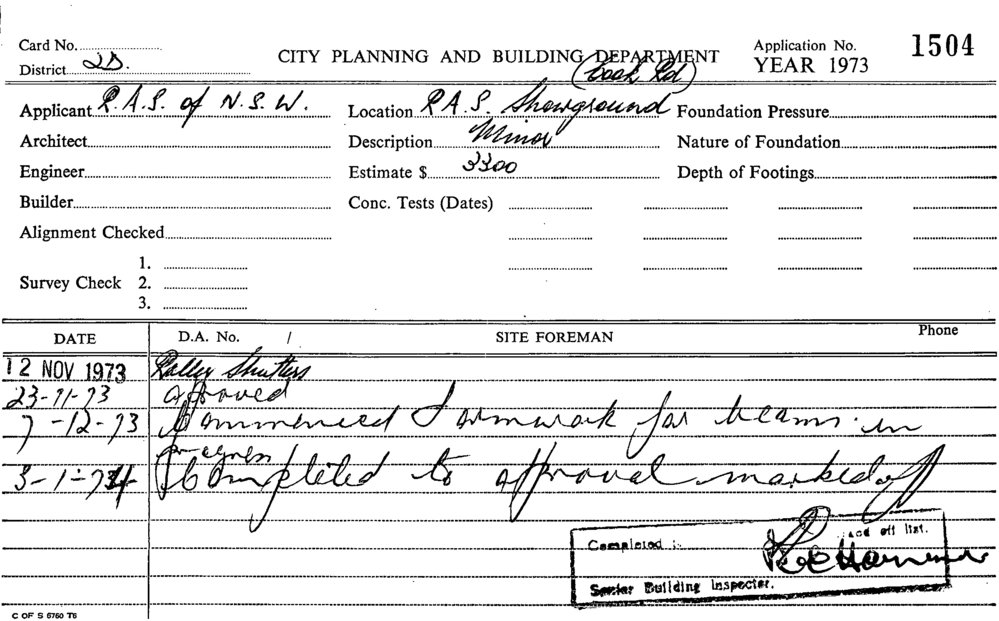 Card No.
District 2D.
CITY PLANNING AND BUILDING DEPARTMENT
Application No. 1504
YEAR 1973
(Cook Rd)
Applicant R.A.S. of N.S.W. Location R.A.S. Showground Foundation Pressure
Architect Description Minor Nature of Foundation
Engineer Estimate $ 3300 Depth of Footings
Builder Conc. Tests (Dates)
Alignment Checked
1.
Survey Check 2.
3.
DATE D.A. No. / SITE FOREMAN Phone
12 NOV 1973 Roller Shutters
23-11-73 approved
7-12-73 Commenced Formwork for beams in
progress
3-1-74 Completed to approval marked off
Completed off list.
Senior Building Inspector.
C OF S 5760 T6